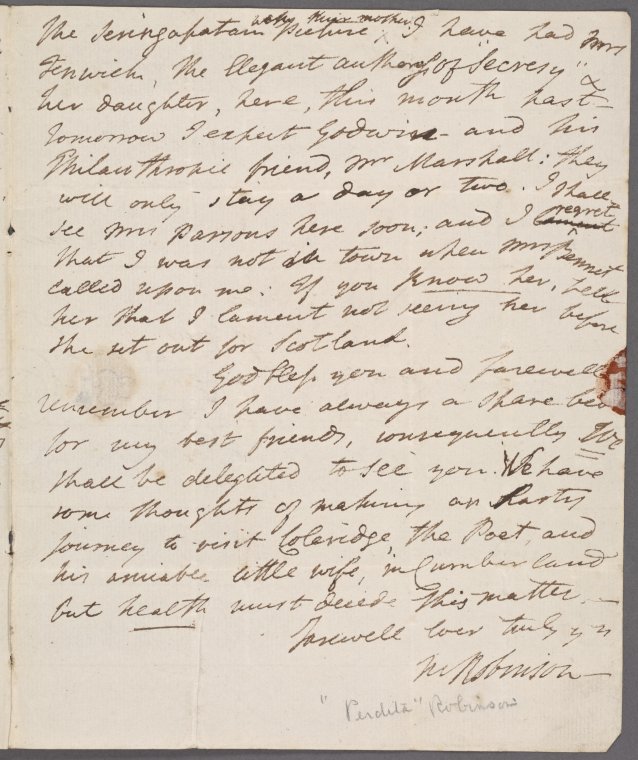 with their mother
The Seringapatam Picture × I have had Mrs
Fenwick, the Elegant author of "Secresy" &
her daughter, here, this month past—
tomorrow I expect Godwin— and his
Philanthropic friend, Mr Marshall: they
will only stay a day or two. I shall
see Mrs Parsons here soon; and I lament regret
that I was not in town when Mrs Bennet
called upon me: If you know her, tell
her that I lament not seeing her before
she set out for Scotland.
God bless you and farewell
remember I have always a spare bed
for my best friends, consequently We
shall be delighted to see you. We have
some thoughts of making an hasty
journey to visit Coleridge, the Poet, and
his amiable little wife, in Cumberland
but health must decide this matter.—
farewell Ever truly yrs
M Robinson—
"Perdita" Robinson